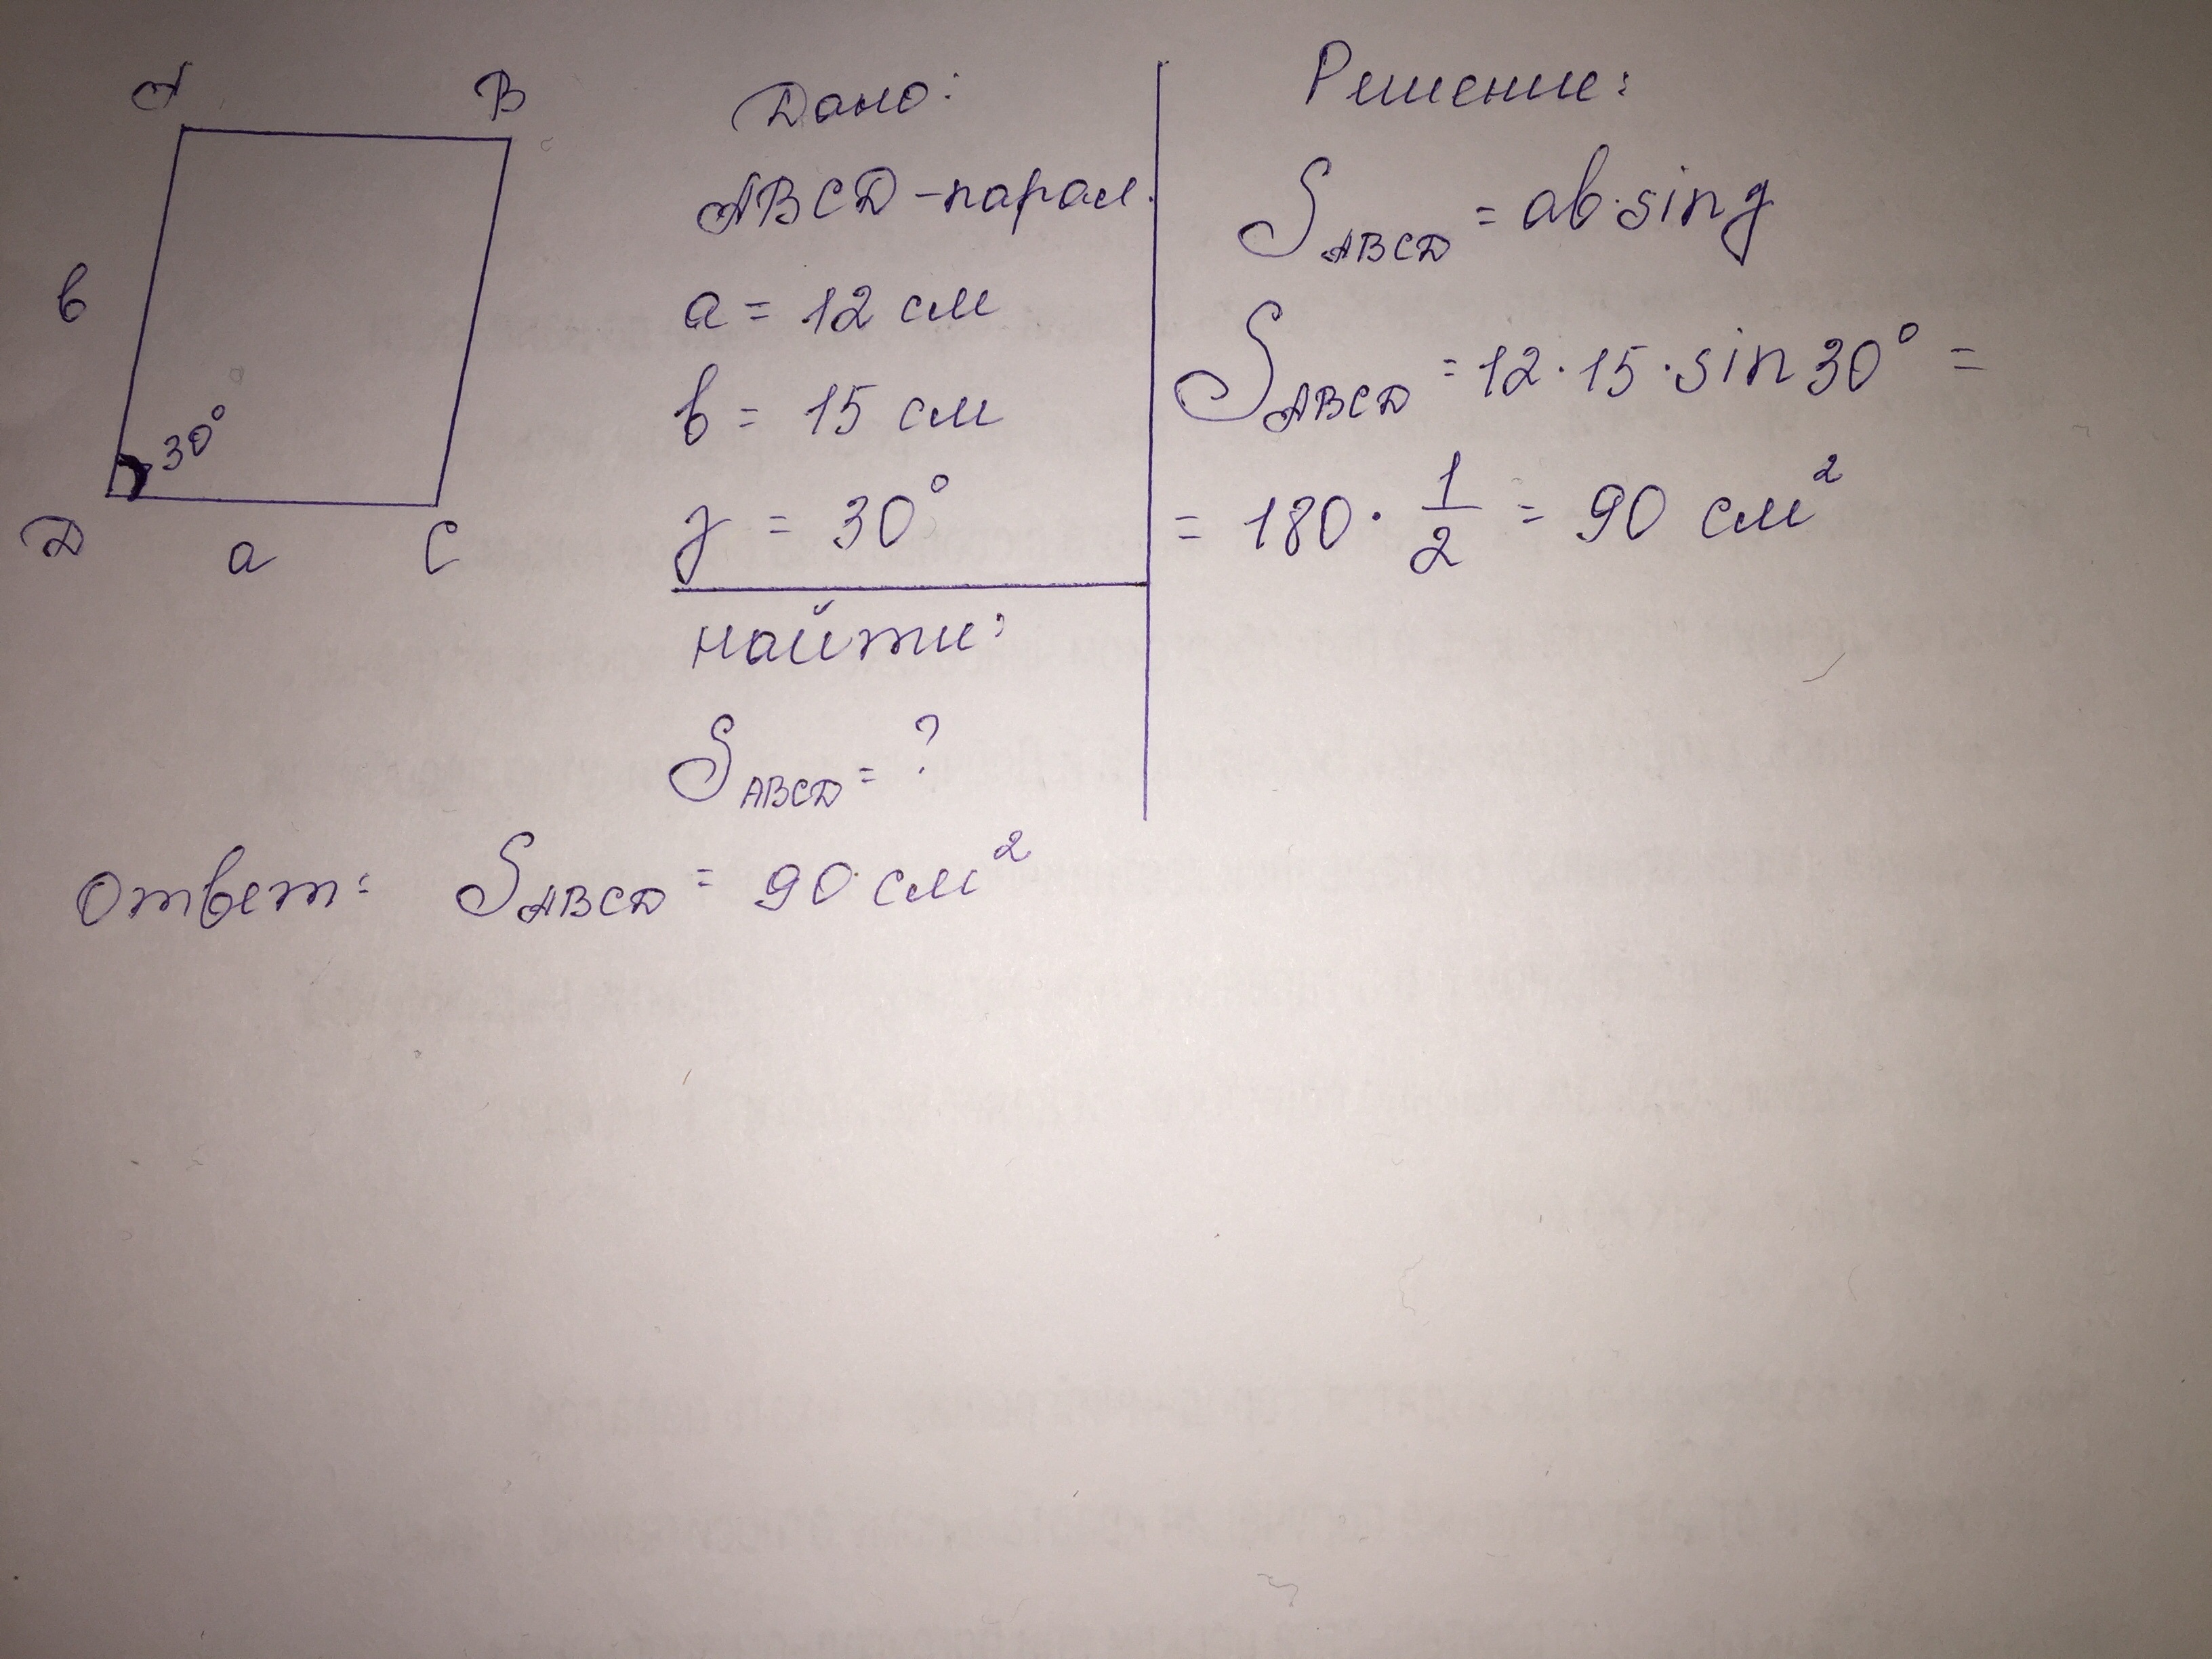 A B
в
30°
D a C
Дано:
ABCD - парал.
a = 12 см
в = 15 см
γ = 30°
найти:
S ABCD = ?
Решение:
S ABCD = ab·sin γ
S ABCD = 12·15·sin 30° =
= 180 · 1/2 = 90 см²
Ответ: S ABCD = 90 см²